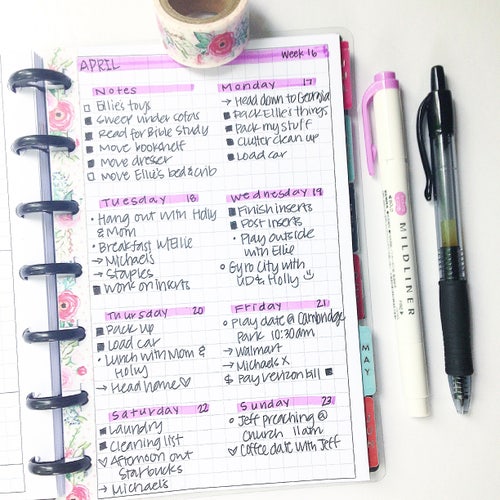 APRIL
Week 16
Notes
Ellie's toys
Sweep under sofas
Read for Bible Study
Move bookshelf
Move dresser
Move Ellie's bed & crib
Monday 17
→ Head down to Georgia
Pack Ellie's things
Pack my stuff
Clutter clean up
Load car
Tuesday 18
• Hang out with Holly
& Mom
• Breakfast w/Ellie
→ Michaels
→ Staples
Work on inserts
Wednesday 19
Finish inserts
Post inserts
• Play outside
with Ellie
Gyro City with
UD & Holly
Thursday 20
Pack up
Load car
• Lunch with Mom &
Holly
→ Head home ♡
Friday 21
Play date @ Cambridge
Park 10:30am
→ Walmart
→ Michaels x
$ Pay verizon bill
Saturday 22
Laundry
Cleaning list
♡ Afternoon out
Starbucks
→ Michaels
Sunday 23
Jeff preaching @
church 11am
♡ Coffee date with Jeff
MAY
MILDLINER